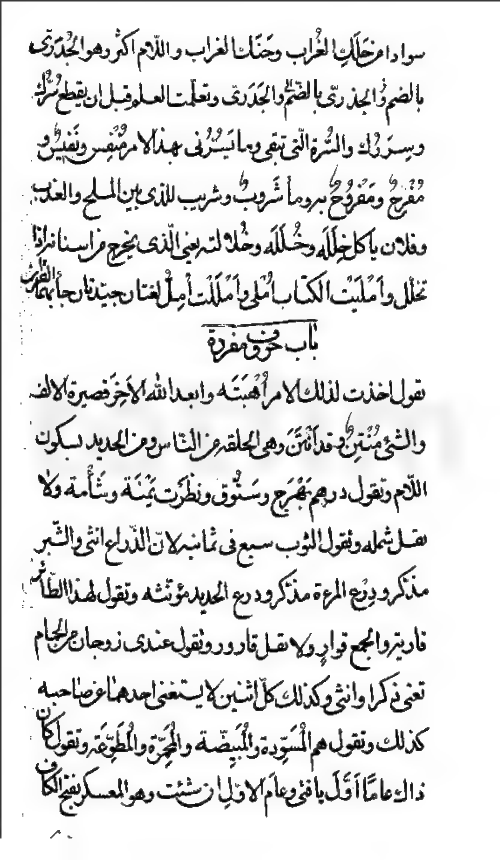 سوادا من حَلَكِ الغُراب وحَنَك الغراب و اللام اكثر وهو الجُدَرّى
بالضم والجذرىّ بالضمّ والجَدَرى وتعلّمت العلم قبل ان يقطع سُرّك
وسِرَرُك والسُّرة الّتى تبقى وما يَسُرُنى بهذا الامر مُنْفِس ونَفِيْسٌ و
مُفْرِحٌ ومَفْرُوحٌ به وماٌ شَروبٌ وشريب للذى بين الملح والعذب
وفلان ياكل خِلَلَه وخُلَله وخُلالته يعنى الّذى يخرج من اسنانه اذا
تخلّل وأمْلَيتُ الكتاب اُملى وأَمْلَلتُ اُمِلُّ لغتان جيّدتان جأ بهما القرآن
باب حروف مفردة
تقول اخذت لذلك الامر اُهْبَتَه وابعد الله الاَخِرَ قصيرة الالف
والشئ مُنْتِن وقد اَنْتَنَ وهى الحلقه من النّاس ومن الحديد بسكون
اللام وتقول درهم بَهْرَج وسَتُّوق ونظرت يَمْنَة وشَأمة ولا
تقل شمله وتقول الثوب سبع فى ثمانيه لانّ الذّراع انثى والشّبر
مذكر ودِرع المرءة مذكر ودرع الحديد مؤنثه وتقول لهذا الطّائر
قارية والجمع قوارٍ ولا تقل قارور وتقول عندى زوجان من الحمام
تعنى ذكرا وانثى وكذلك كلّ اثنين لا يستغنى احدهما عن صاحبه
كذلك وتقول هم المُسَوِّدة والمُبَيِّضَة والمُحَمِّرة والمُطَوِّعَة وتقول كان
ذاك عامًا اَوّلَ يا فتى وعامَ الاولِ ان شئت وهو المعسكر بفتح الكاف